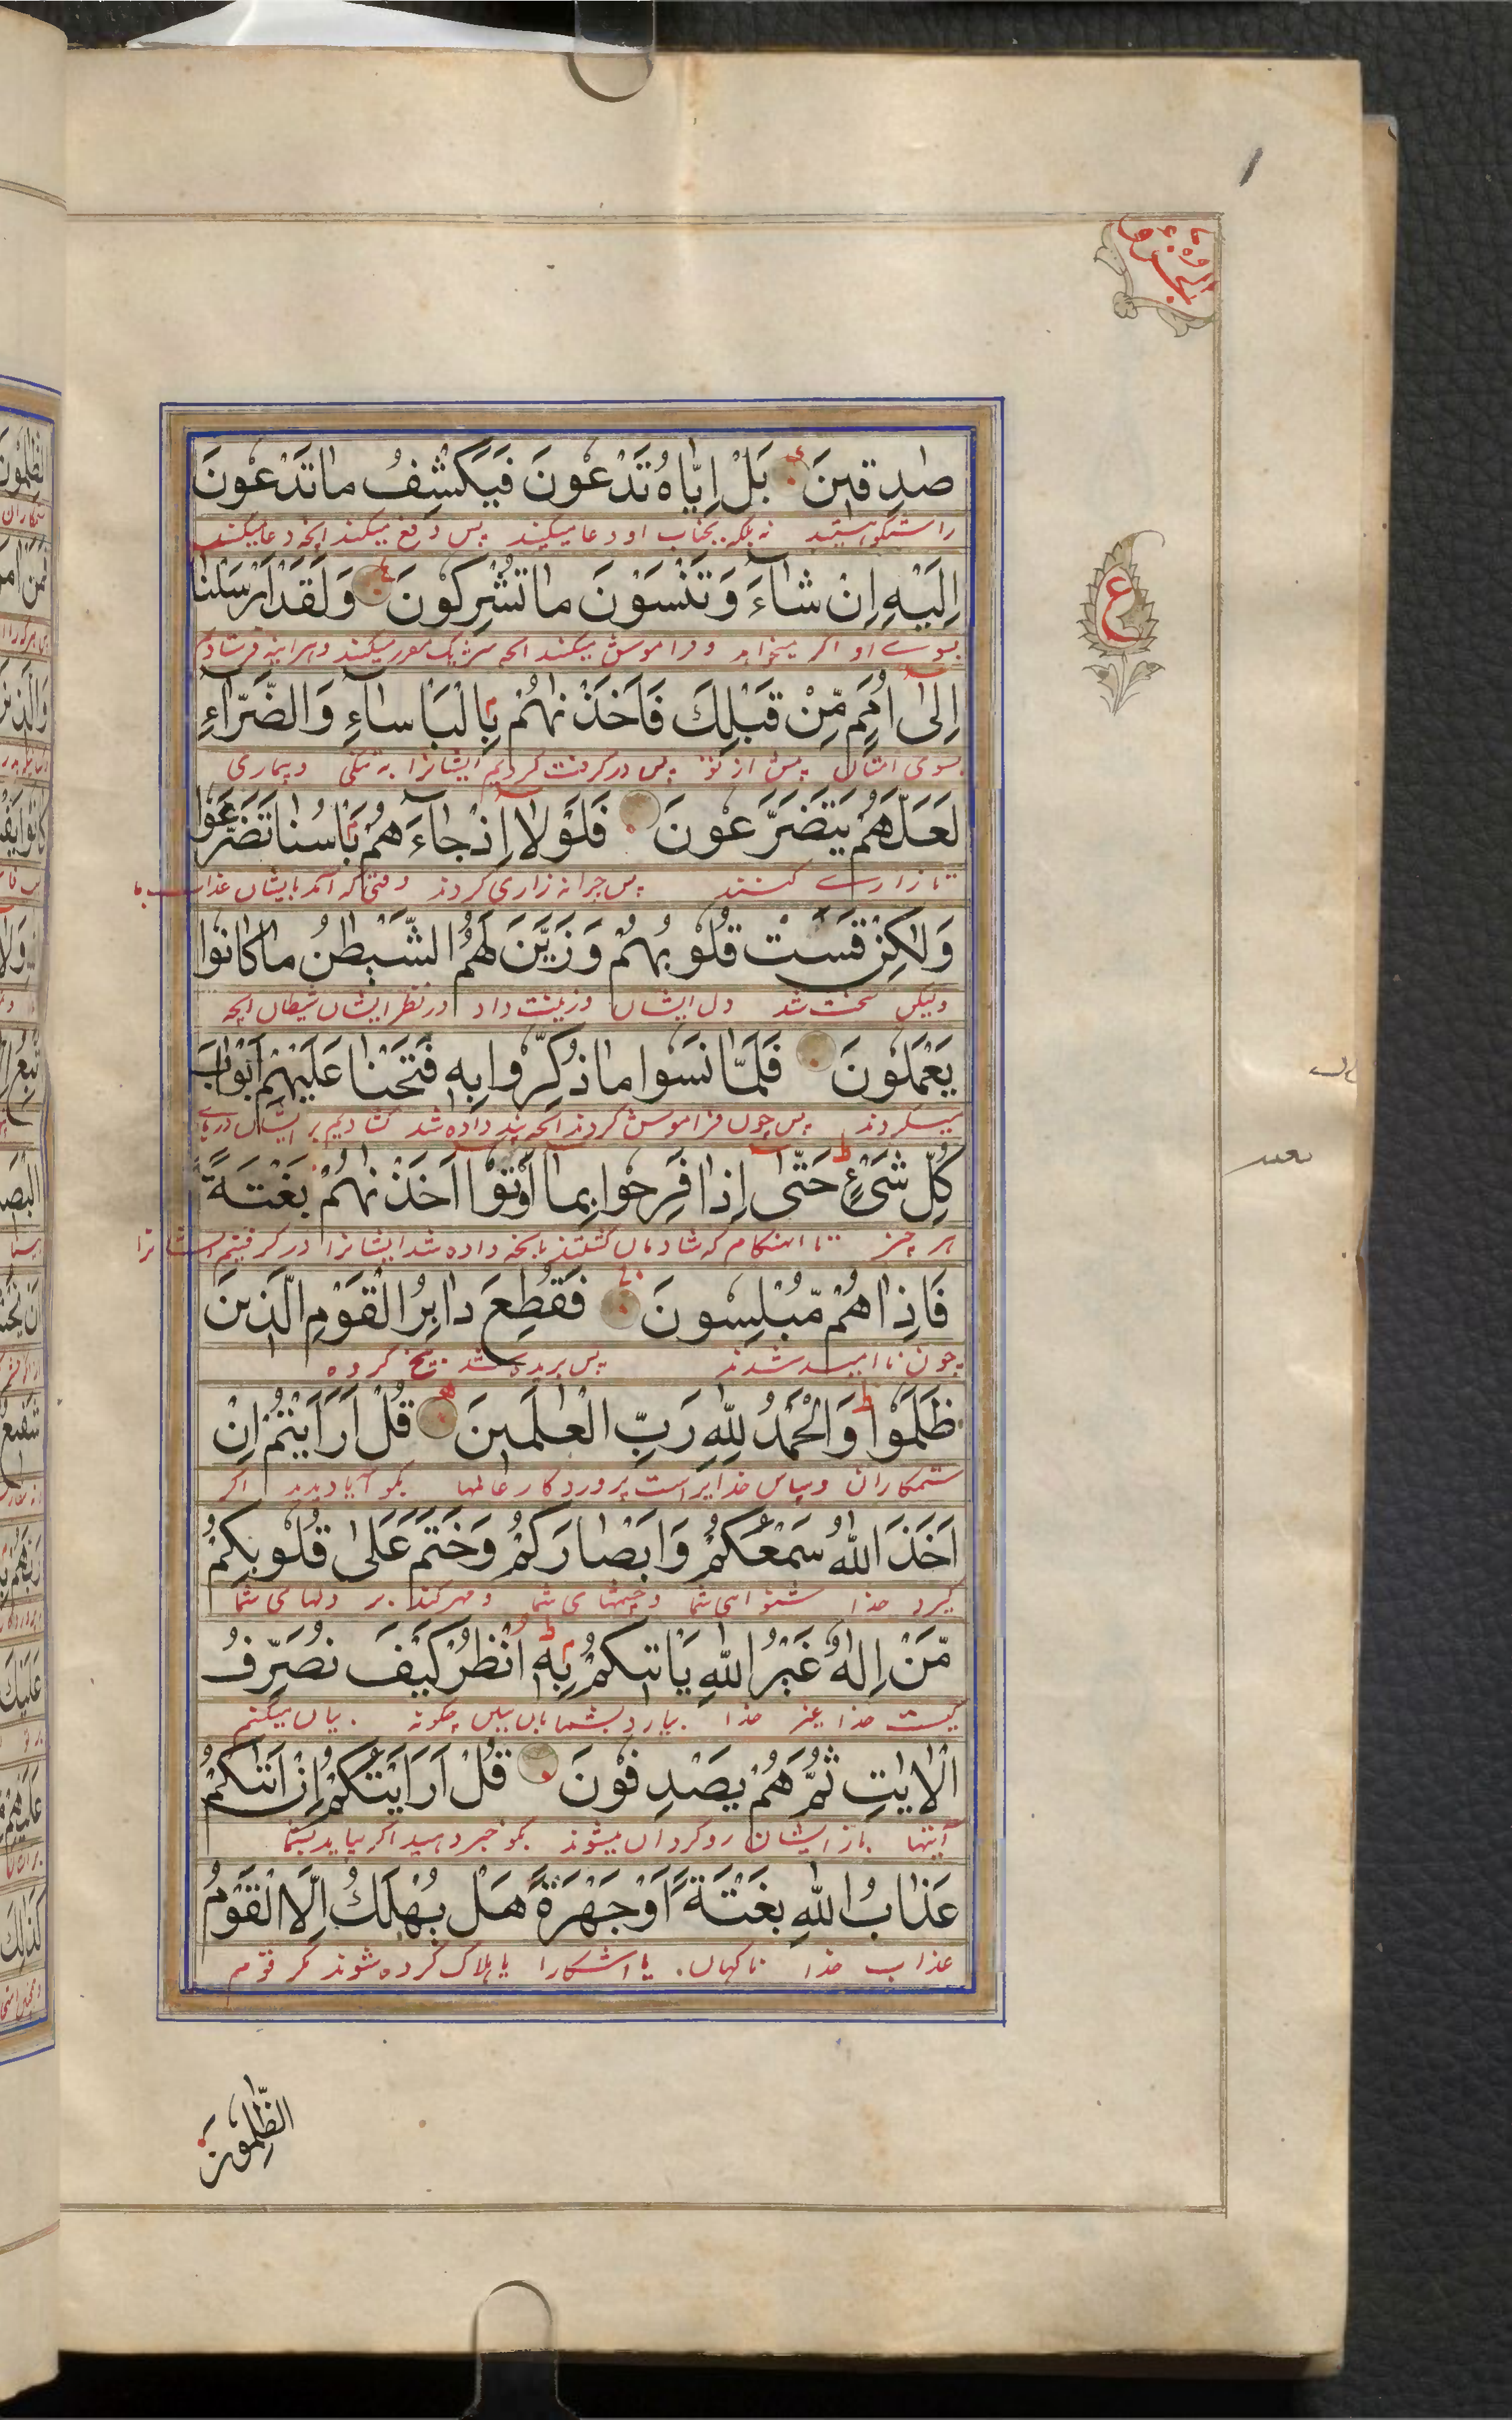 صٰدِقينَ بَلْ اِيّاهُ تَدْعونَ فَيَكْشِفُ ما تَدْعونَ
راستگو هستید نه بلکه بجناب او دعا میکنید پس دفع میکند انچه دعا میکنید
اِلَيْهِ اِنْ شآءَ وَتَنْسَوْنَ ما تُشْرِكونَ وَلَقَدْ اَرْسَلْنا
بسوے او اکر میخواهد و فراموش میکنید انچه شریک مقرر میکنید و هر اینه فرستادیم
اِلىٰ اُمَمٍ مِّنْ قَبْلِكَ فَاَخَذْنٰهُمْ بِالْبَاْساءِ وَالضَّرّاءِ
بسوی امتان پیش از تو پس در گرفت کردیم ایشانرا به تنگی و بیماری
لَعَلَّهُمْ يَتَضَرَّعونَ فَلَوْلا اِذْ جآءَهُمْ بَاْسُنا تَضَرَّعُوْا
تا زارے کنند پس چرا نه زاری کردند وقتی که آمد بایشان عذاب ما
وَلٰكِنْ قَسَتْ قُلُوبُهُمْ وَزَيَّنَ لَهُمُ الشَّيْطٰنُ ما كانوا
ولیکن سخت شد دل ایشان و زینت داد در نظر ایشان شیطان انچه
يَعْمَلُونَ فَلَمّا نَسُوا ما ذُكِّروا بِهٖ فَتَحْنا عَلَيْهِمْ اَبْوابَ
میکردند پس چون فراموش کردند انچه پند داده شد کشادیم بر ایشان درہاے
كُلِّ شَیْءٍ حَتّٰى اِذا فَرِحوا بِما اُوتوا اَخَذْنٰهُمْ بَغْتَةً
هر چیز تا اهنکام که شادمان کشتند بانچه داده شد ایشانرا در کرفتیم ایشانرا
فَاِذا هُمْ مُّبْلِسونَ فَقُطِعَ دابِرُ الْقَوْمِ الَّذينَ
چون نا امید شدند پس بریده شد بیخ کروه
ظَلَمُوا وَالْحَمْدُ لِلّٰهِ رَبِّ الْعٰلَمينَ قُلْ اَرَاَيْتُمْ اِنْ
ستمکاران و سپاس خدایراست پروردکار عالمها بکو آیا دیدید اکر
اَخَذَ اللّٰهُ سَمْعَكُمْ وَاَبْصارَكُمْ وَخَتَمَ عَلىٰ قُلُوبِكُمْ
کیرد خدا شنوائی شما و چشمهای شما و مهر کند بر دلهای شما
مَّنْ اِلٰهٌ غَيْرُ اللّٰهِ يَاْتيكُمْ بِهٖ اُنْظُرْ كَيْفَ نُصَرِّفُ
کیست خدا غیر خدا بیارد بشما بان ببین چکونه بیان میکنیم
الْاٰيٰتِ ثُمَّ هُمْ يَصْدِفُونَ قُلْ اَرَاَيْتَكُمْ اِنْ اَتٰىكُمْ
آیتها باز ایشان روکردان میشوند بکو خبر دهید اکر بیاید بشما
عَذابُ اللّٰهِ بَغْتَةً اَوْ جَهْرَةً هَلْ يُهْلَكُ اِلَّا الْقَوْمُ
عذاب خدا ناکهان یا اشکارا یا هلاک کرده شوند مکر قوم
الظّٰلِمُونَ
ع